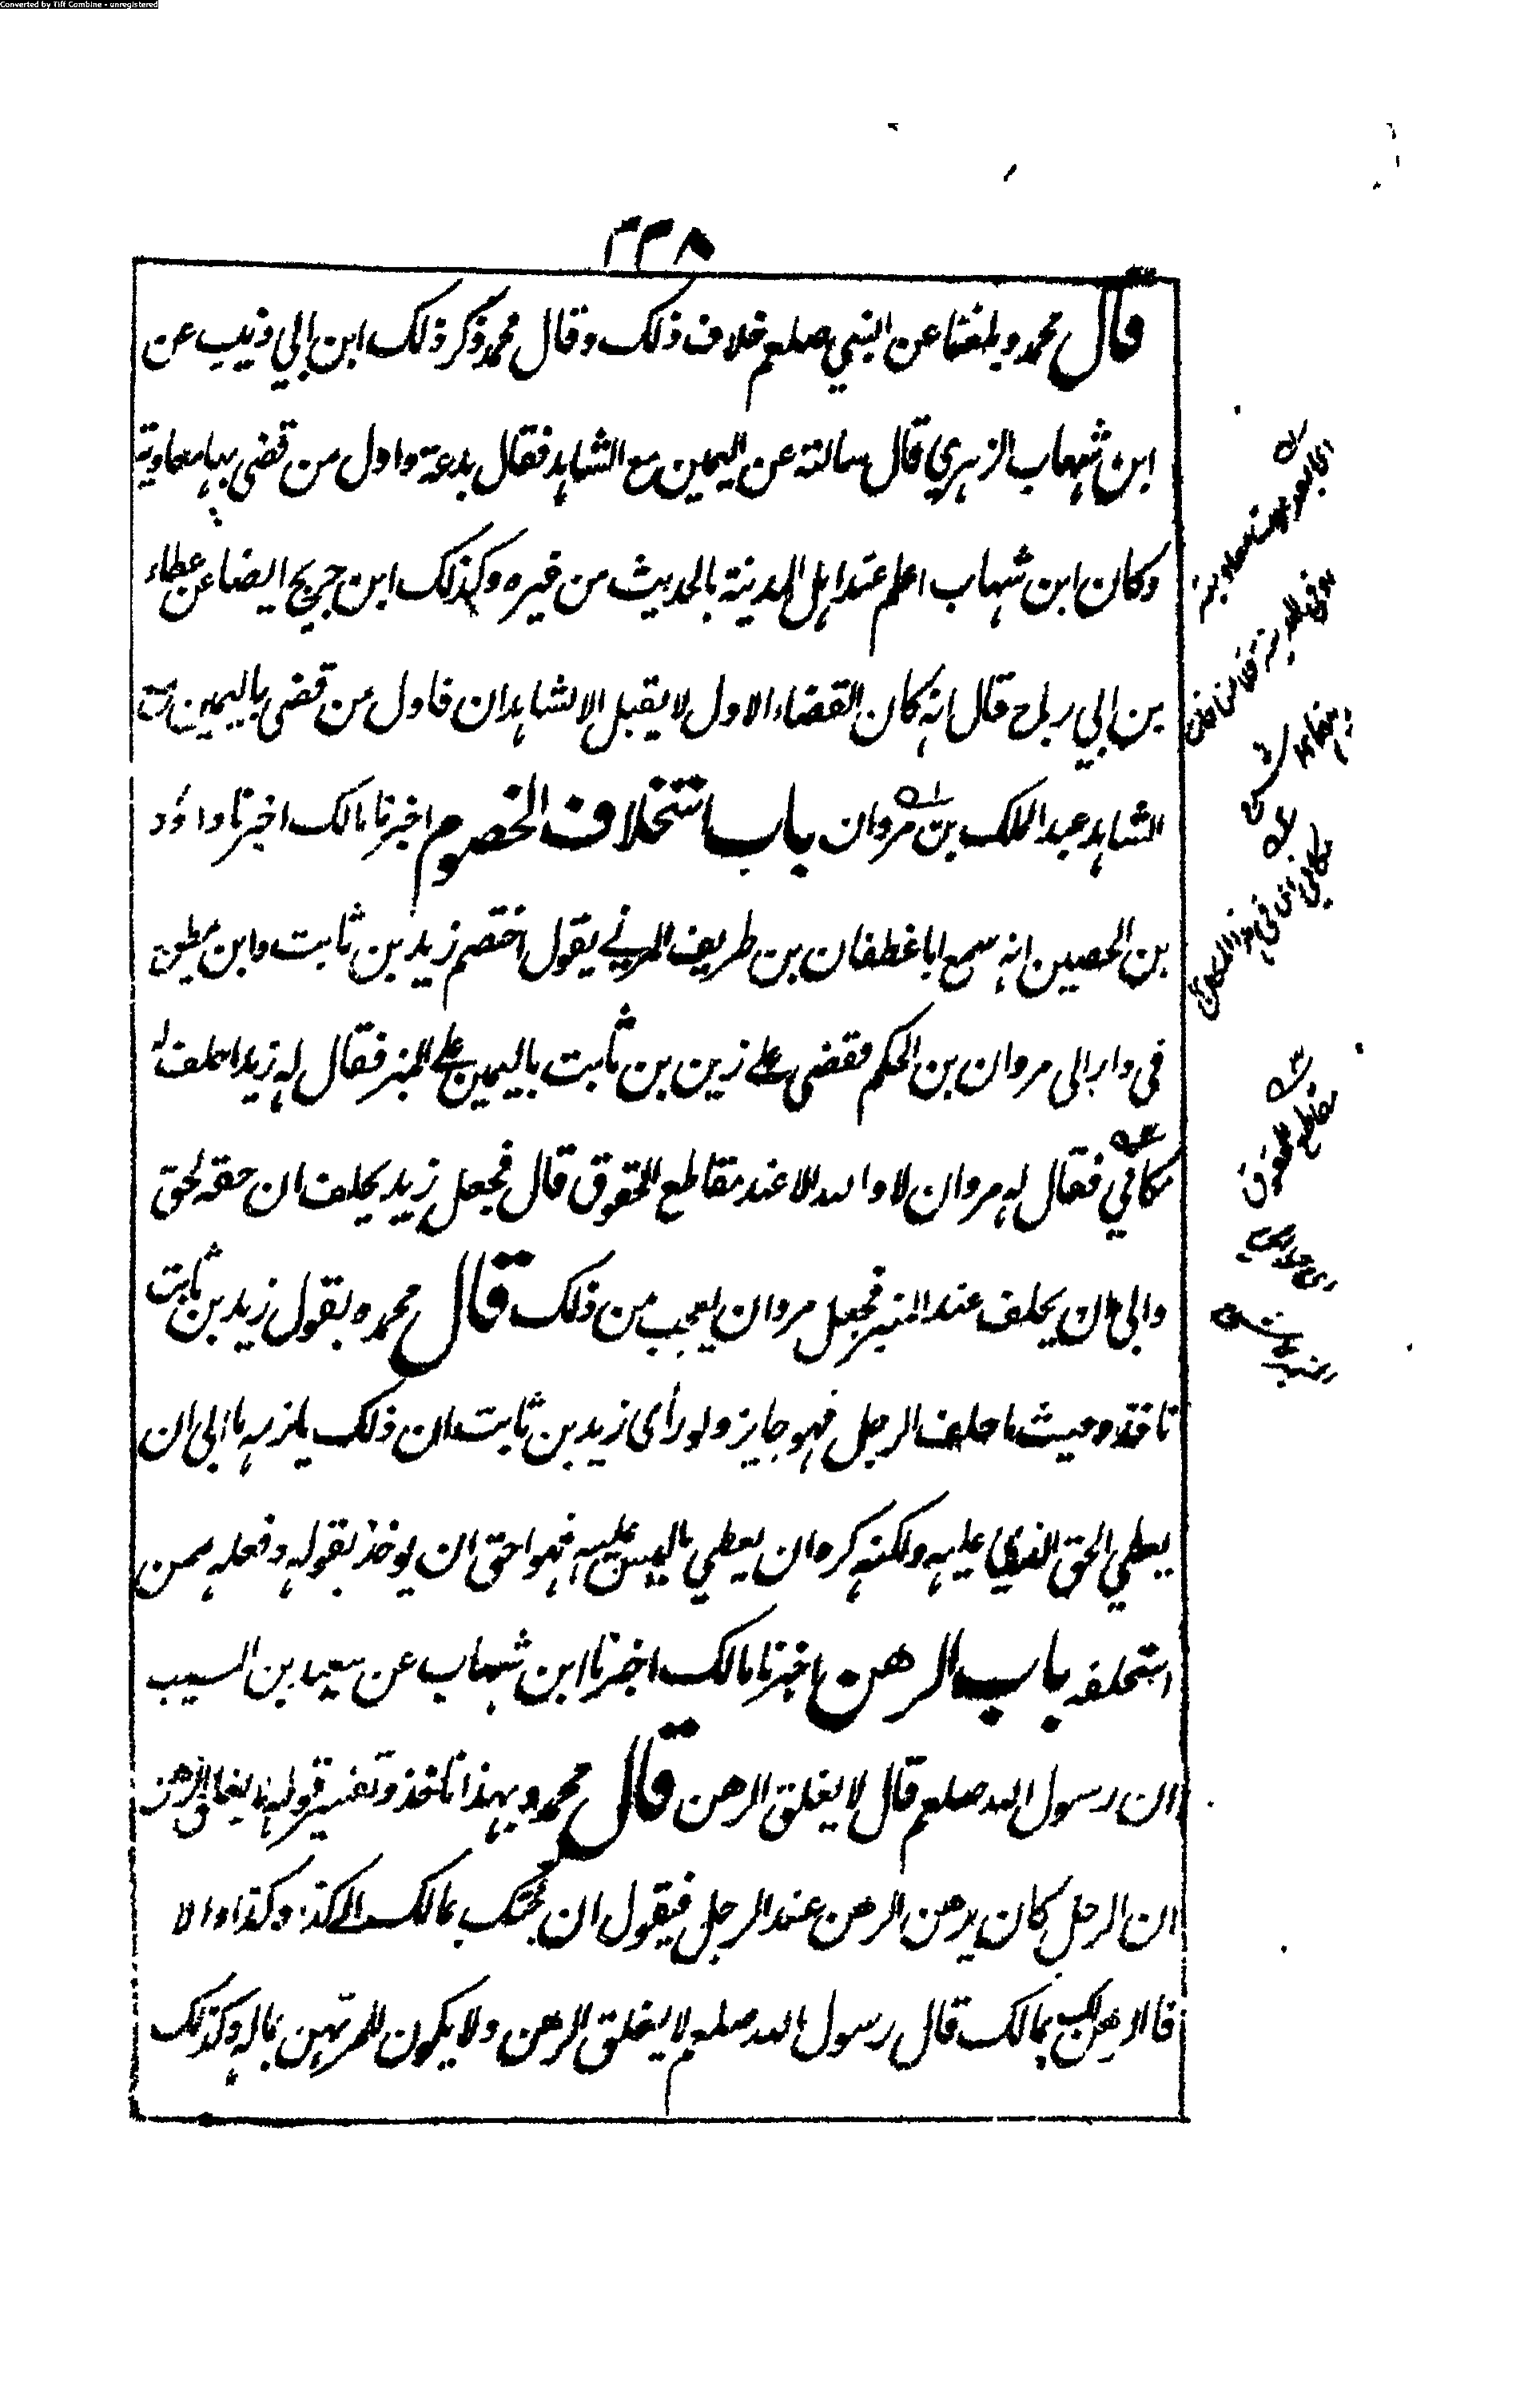 Converted by Tiff Combine - unregistered
٣٣٨
قال محمد وبلغنا عن النبي صلعم خلاف ذلك وقال محمد ذكر ذلك ابن ابي ذيب عن
ابن شهاب الزهري قال سالته عن اليمين مع الشاهد فقال بدعة واول من قضى بها معاوية
وكان ابن شهاب اعلم عند اهل المدينة بالحديث من غيره وكذلك ابن جريج ايضا عن عطاء
بن ابي رباح قال انه كان القضاء الاول لا يقبل الا شاهدان فاول من قضى باليمين مع
الشاهد عبد الملك بن مروان باب استحلاف الخصوم اخبرنا مالك اخبرنا داؤد
بن الحصين انه سمع ابا غطفان بن طريف المري يقول اختصم زيد بن ثابت وابن مطيع
في دار الى مروان بن الحكم فقضى على زين بن ثابت باليمين على المنبر فقال له زيد احلف له
مكاني فقال له مروان لا والله الا عند مقاطع الحقوق قال فجعل زيد يحلف ان حقه لحق
وابى ان يحلف عند المنبر فجعل مروان يعجب من ذلك قال محمد وبقول زيد بن ثابت
ناخذ وحيث ما حلف الرجل فهو جايز ولو رأى زيد بن ثابت ان ذلك يلزمه ما ابى ان
يعطي الحق الذي عليه ولكنه كره ان يعطي ما ليس عليه فهو احق ان يوخذ بقوله وفعله ممن
استحلفه باب الرهن اخبرنا مالك اخبرنا ابن شهاب عن سعيد بن المسيب
ان رسول الله صلعم قال لا يغلق الرهن قال محمد وبهذا ناخذ وتفسير قوله لا يغلق الرهن
ان الرجل كان يرهن الرهن عند الرجل فيقول ان جئتك بمالك الى كذا وكذا والا
فالرهن لك بمالك قال رسول الله صلعم لا يغلق الرهن ولا يكون للمرتهن بماله وكذلك
مقاطع الحقوق